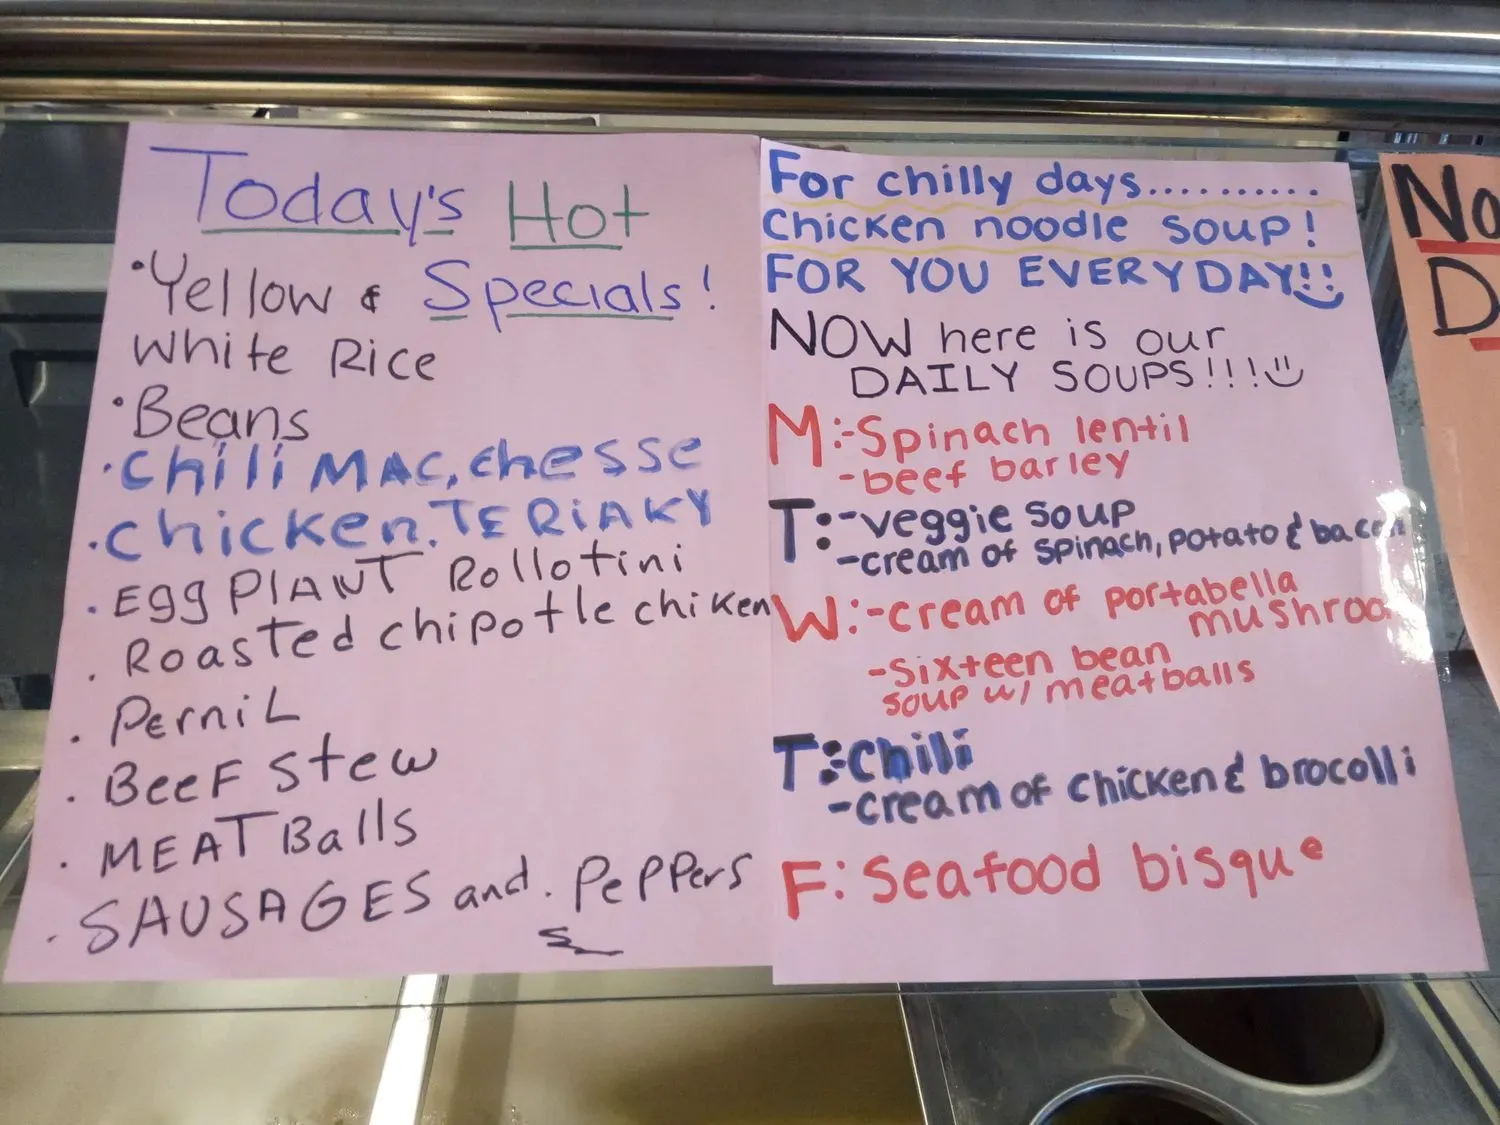 Today's Hot
Specials!
•Yellow &
White Rice
•Beans
•chili MAC, chesse
•chicken. TERiAKY
•Egg PLANT Rollotini
•Roasted chipotle chiken
•Pernil
•BeeF Stew
•MEAT Balls
•SAUSAGES and. PePPers
For chilly days..........
Chicken noodle soup!
FOR YOU EVERYDAY!!
NOW here is our
DAILY SOUPS!!!
M:-Spinach lentil
-beef barley
T:-veggie soup
-cream of spinach, potato & bacon
W:-cream of portabella
mushroom
-sixteen bean
soup w/ meatballs
T:-chili
-cream of chicken & brocolli
F: Seafood bisque
No
D